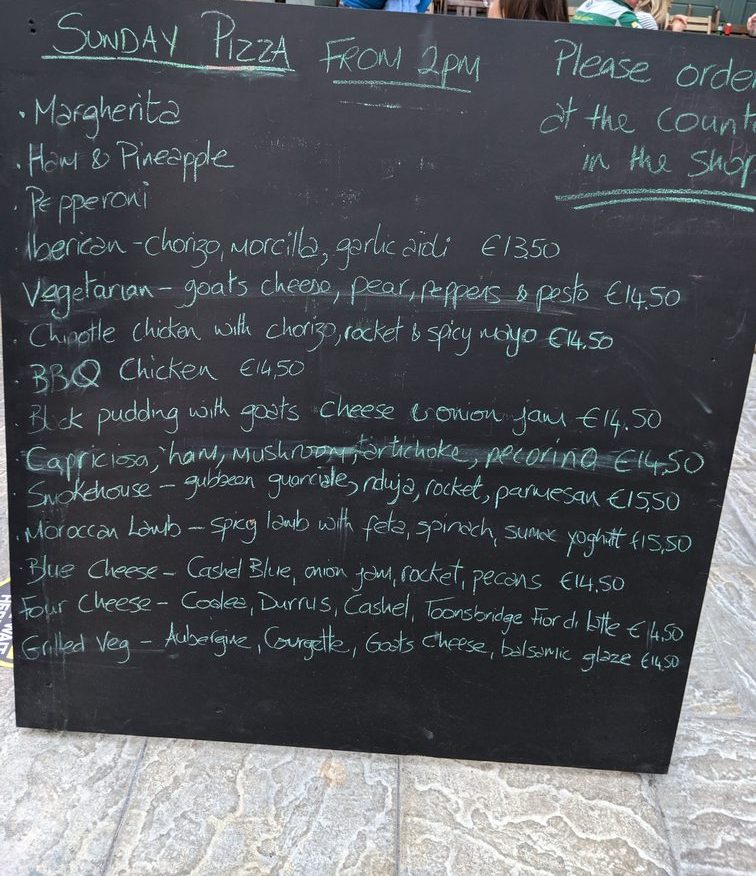 SUNDAY PIZZA FROM 2PM
Please orde
at the count
in the shop
· Margherita
· Ham & Pineapple
· Pepperoni
· Iberican - chorizo, morcilla, garlic aioli €13.50
Vegetarian - goats cheese, pear, peppers & pesto €14.50
· Chipotle chicken with chorizo, rocket & spicy mayo €14.50
· BBQ Chicken €14,50
· Black pudding with goats cheese & onion jam €14.50
Capriciosa, ham, mushroom, artichoke, pecorino €14,50
· Smokehouse - gubbeen guanciale, nduja, rocket, parmesan €15,50
· Moroccan Lamb - spicy lamb with feta, spinach, sumac yoghurt €15,50
· Blue Cheese - Cashel Blue, onion jam, rocket, pecans €14.50
Four Cheese - Coolea, Durrus, Cashel, Toonsbridge Fior di latte €14.50
Grilled Veg - Aubergine, Courgette, Goats Cheese, balsamic glaze €14.50